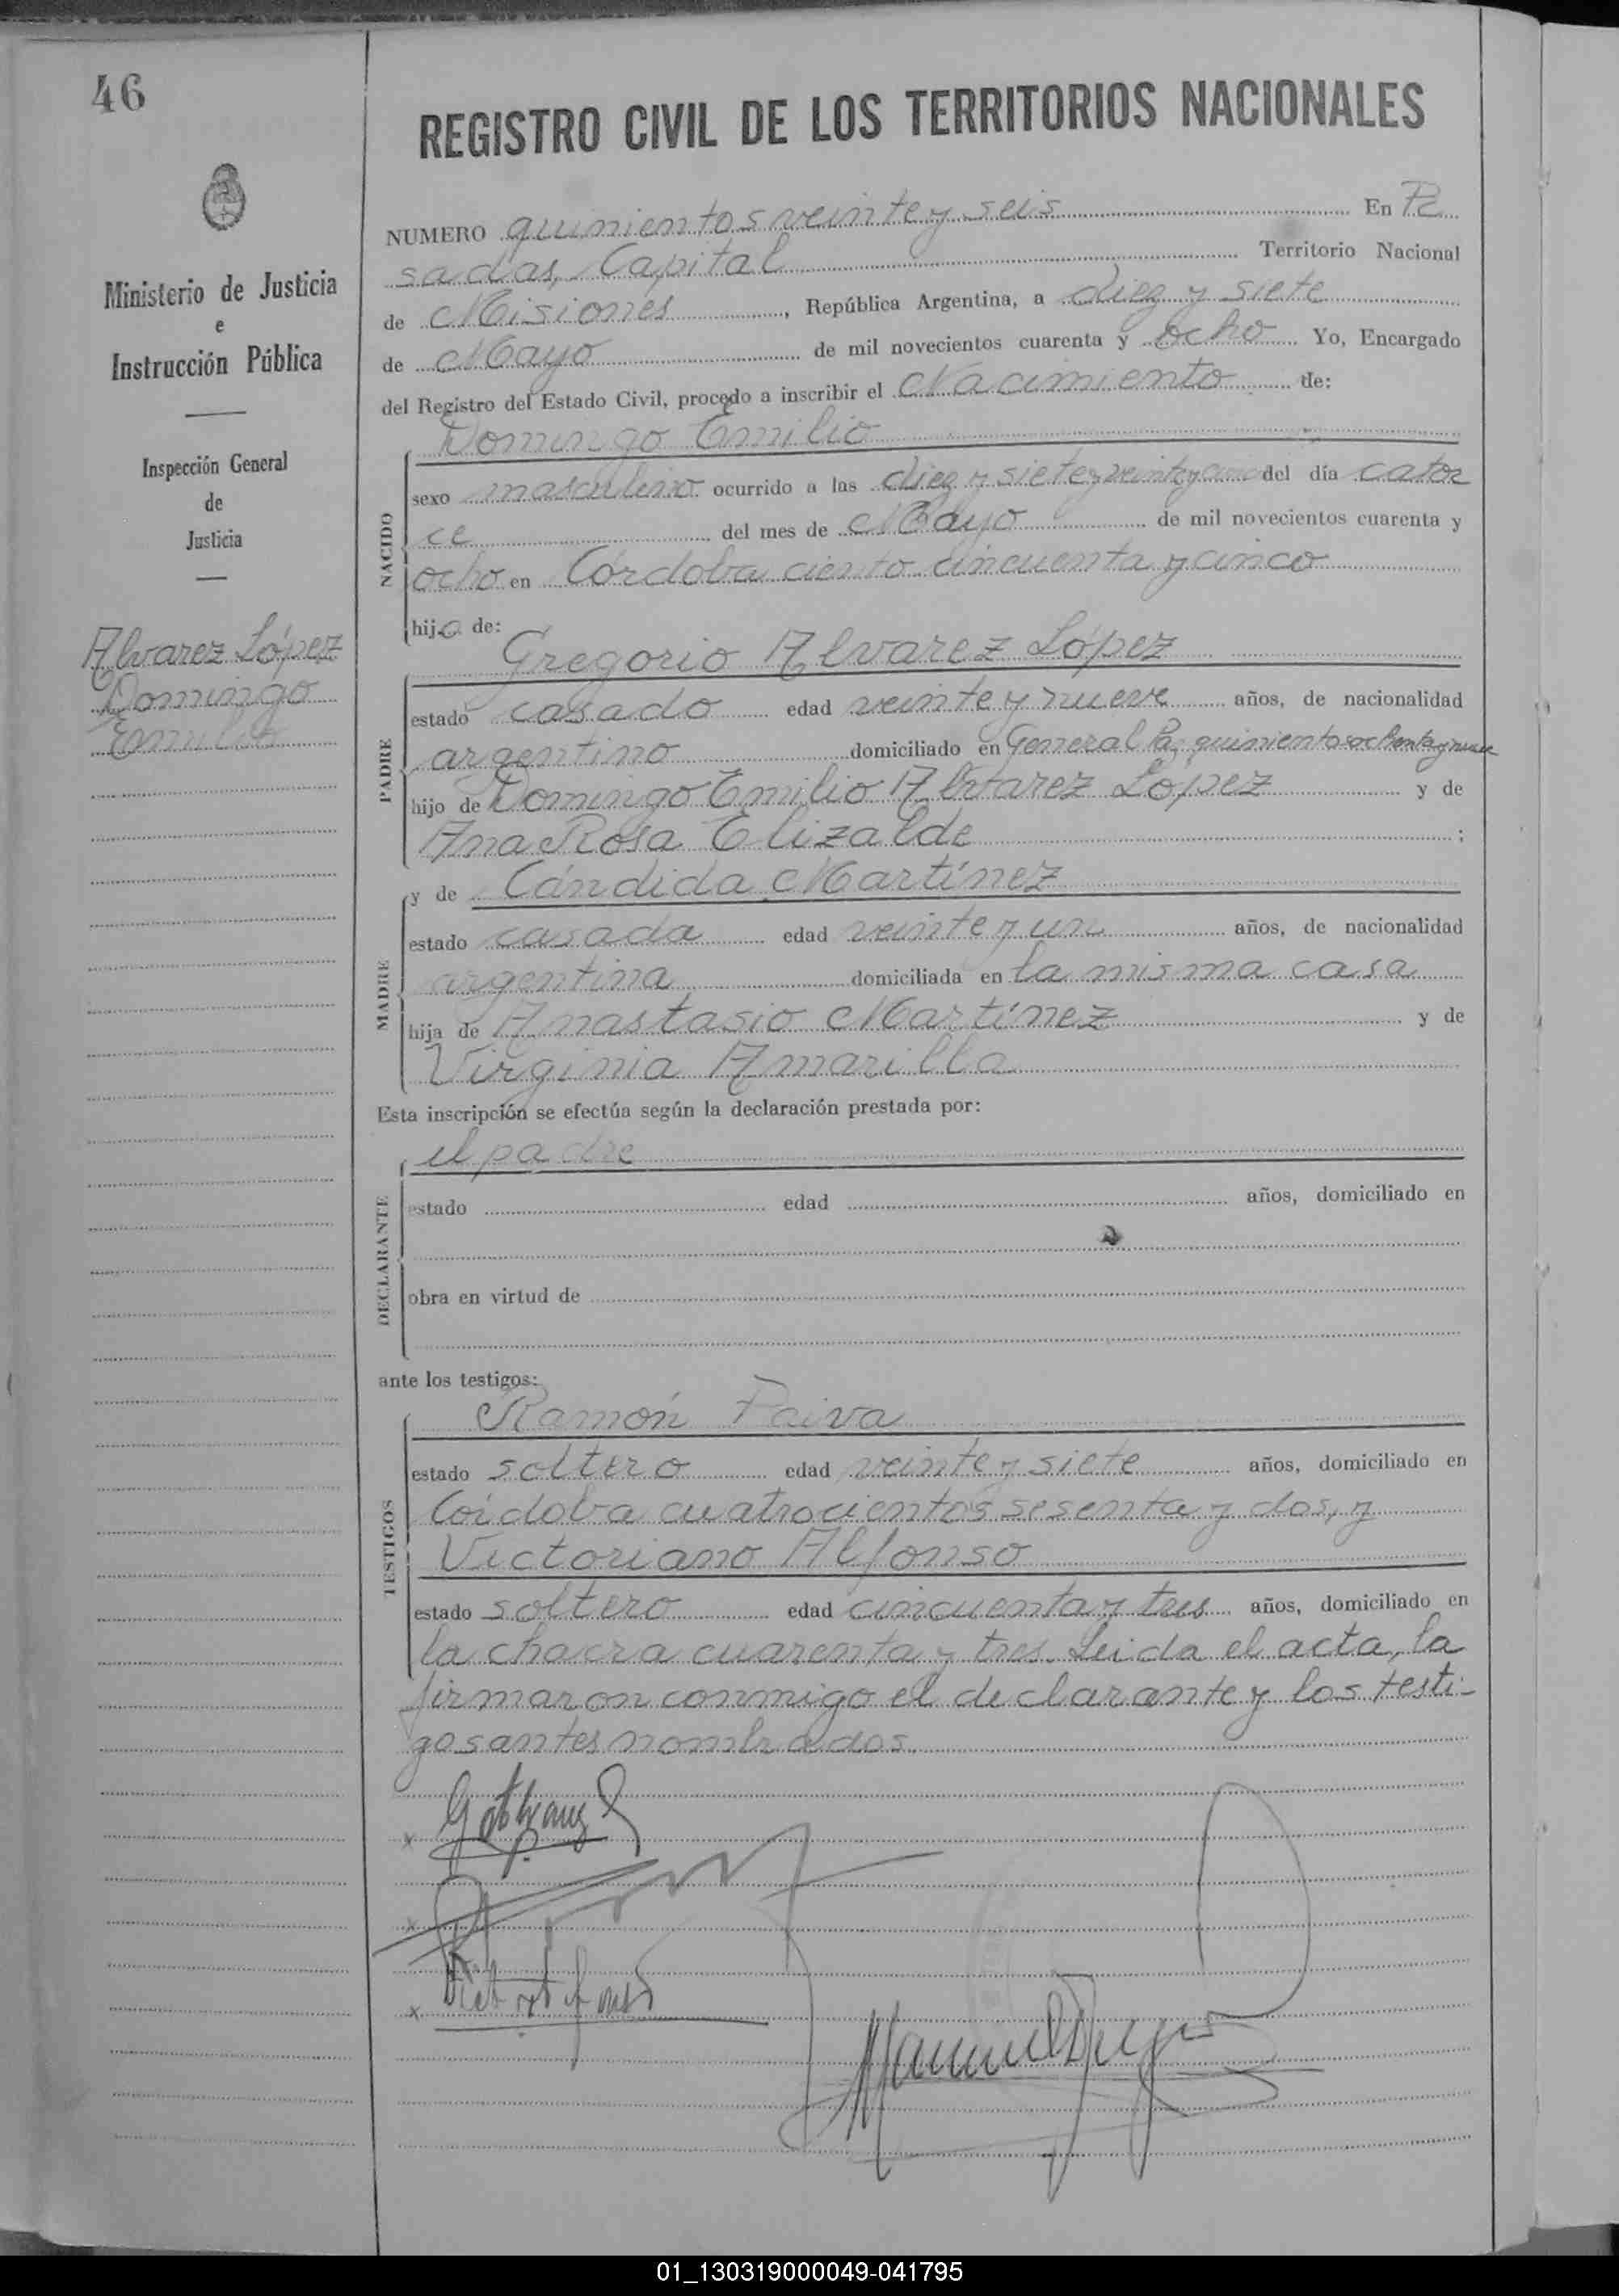 46
REGISTRO CIVIL DE LOS TERRITORIOS NACIONALES
Ministerio de Justicia
e
Instrucción Pública
Inspección General
de
Justicia
Alvarez López
Domingo
Emilio
NUMERO quinientos veinte y seis En Po
sadas, Capital Territorio Nacional
de Misiones, República Argentina, a diez y siete
de Mayo de mil novecientos cuarenta y ocho Yo, Encargado
del Registro del Estado Civil, procedo a inscribir el Nacimiento de:
Domingo Emilio
NACIDO
sexo masculino ocurrido a las diez y siete y veinte y cinco del día cator
ce del mes de Mayo de mil novecientos cuarenta y
ocho en Córdoba ciento cincuenta y cinco
hijo de:
Gregorio Alvarez López
PADRE
estado casado edad veinte y nueve años, de nacionalidad
argentino domiciliado en General Paz quinientos ochenta y nueve
hijo de Domingo Emilio Alvarez López y de
Ana Rosa Elizalde ;
y de Cándida Martínez
MADRE
estado casada edad veinte y un años, de nacionalidad
argentina domiciliada en la misma casa
hija de Anastasio Martínez y de
Virginia Amarilla
Esta inscripción se efectúa según la declaración prestada por:
el padre
DECLARANTE
estado edad años, domiciliado en
obra en virtud de
ante los testigos:
Ramón Paiva
TESTIGOS
estado soltero edad veinte y siete años, domiciliado en
Córdoba cuatrocientos sesenta y dos, y
Victoriano Alfonso
estado soltero edad cincuenta y tres años, domiciliado en
la chacra cuarenta y tres. Leida el acta, la
firmaron conmigo el declarante y los testi-
gos antes nombrados.
x
x
x
01_130319000049-041795